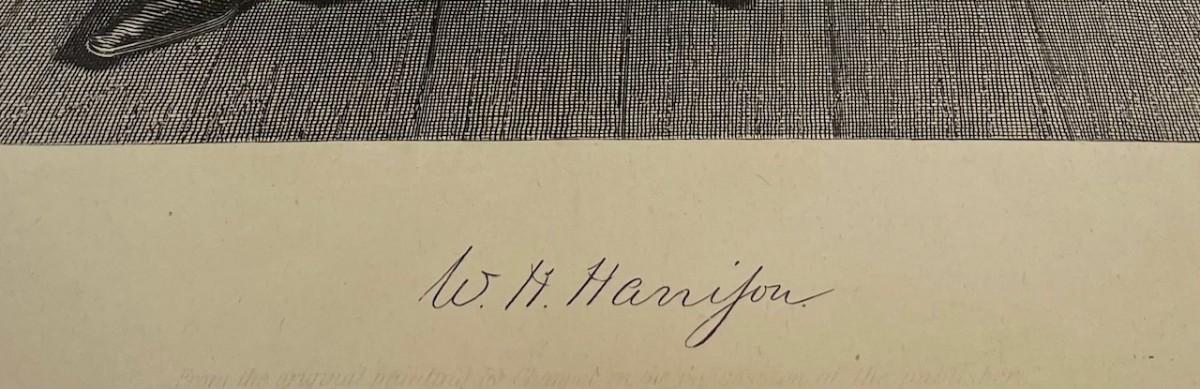 W. H. Harriſon.
From the original painting by Chappel in the possession of the publishers